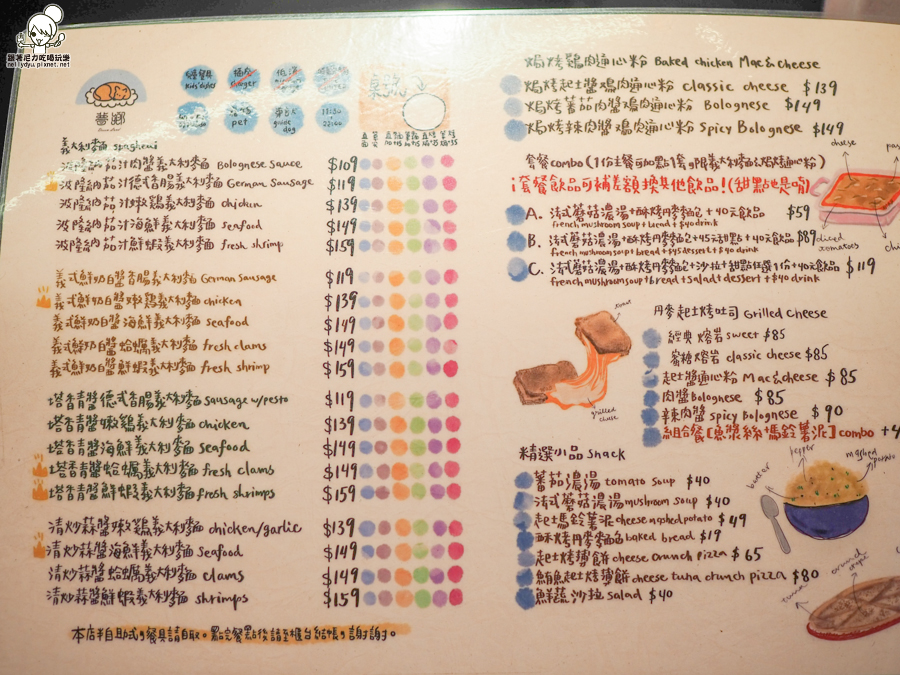 跟著尼力吃喝玩樂
nellydyu.pixnet.net
夢鄉
kids' dishes
pet
guide dog
義大利麵 spaghetti
波隆納茄汁肉醬義大利麵 Bolognese sauce $109
波隆納茄汁德式香腸義大利麵 German Sausage $119
波隆納茄汁嫩雞義大利麵 chicken $139
波隆納茄汁海鮮義大利麵 seafood $149
波隆納茄汁鮮蝦義大利麵 fresh shrimp $159
義式鮮奶白醬香腸義大利麵 German sausage $119
義式鮮奶白醬嫩雞義大利麵 chicken $139
義式鮮奶白醬海鮮義大利麵 seafood $149
義式鮮奶白醬蛤蠣義大利麵 fresh clams $149
義式鮮奶白醬鮮蝦義大利麵 fresh shrimp $159
塔香青醬德式香腸義大利麵 sausage w/pesto $119
塔香青醬嫩雞義大利麵 chicken $139
塔香青醬海鮮義大利麵 seafood $149
塔香青醬蛤蠣義大利麵 fresh clams $149
塔香青醬鮮蝦義大利麵 fresh shrimps $159
清炒蒜醬嫩雞義大利麵 chicken/garlic $139
清炒蒜醬海鮮義大利麵 seafood $149
清炒蒜醬蛤蠣義大利麵 clams $149
清炒蒜醬鮮蝦義大利麵 shrimps $159
本店半自助式,餐具請自取。點完餐點後請至櫃台結帳,謝謝。
焗烤雞肉通心粉 Baked chicken Mac & cheese
焗烤起士醬雞肉通心粉 classic cheese $139
焗烤蕃茄肉醬雞肉通心粉 Bolognese $149
焗烤辣肉醬雞肉通心粉 Spicy Bolognese $149
套餐combo(1份主餐可加點1套,限義大利麵&焗烤通心粉)
¡套餐飲品可補差額換其他飲品!(甜點也是唷)
A. 法式蘑菇濃湯+酥烤丹麥麵包+40元飲品 $59
french mushroom soup + bread + $40 drink
B. 法式蘑菇濃湯+酥烤丹麥麵包+45元甜點+40元飲品 $89
french mushroom soup + bread + $45 dessert + $40 drink
C. 法式蘑菇濃湯+酥烤丹麥麵包+沙拉+甜點任選1份+40元飲品 $119
french mushroom soup + bread + salad + dessert + $40 drink
cheese
diced tomatoes
丹麥起士烤吐司 Grilled cheese
經典熔岩 sweet $85
蜜糖熔岩 classic cheese $85
起士醬通心粉 Mac & cheese $85
肉醬 Bolognese $85
辣肉醬 spicy Bolognese $90
組合餐[魚漿絲.馬鈴薯泥] combo +4
toast
grilled cheese
精選小品 snack
蕃茄濃湯 tomato soup $40
法式蘑菇濃湯 mushroom soup $40
起士馬鈴薯泥 cheese mashed potato $49
酥烤丹麥麵包 baked bread $19
起士烤薄餅 cheese crunch pizza $65
鮪魚起士烤薄餅 cheese tuna crunch pizza $80
鮮蔬沙拉 salad $40
butter
pepper
mashed potato
tuna
crunch crepe